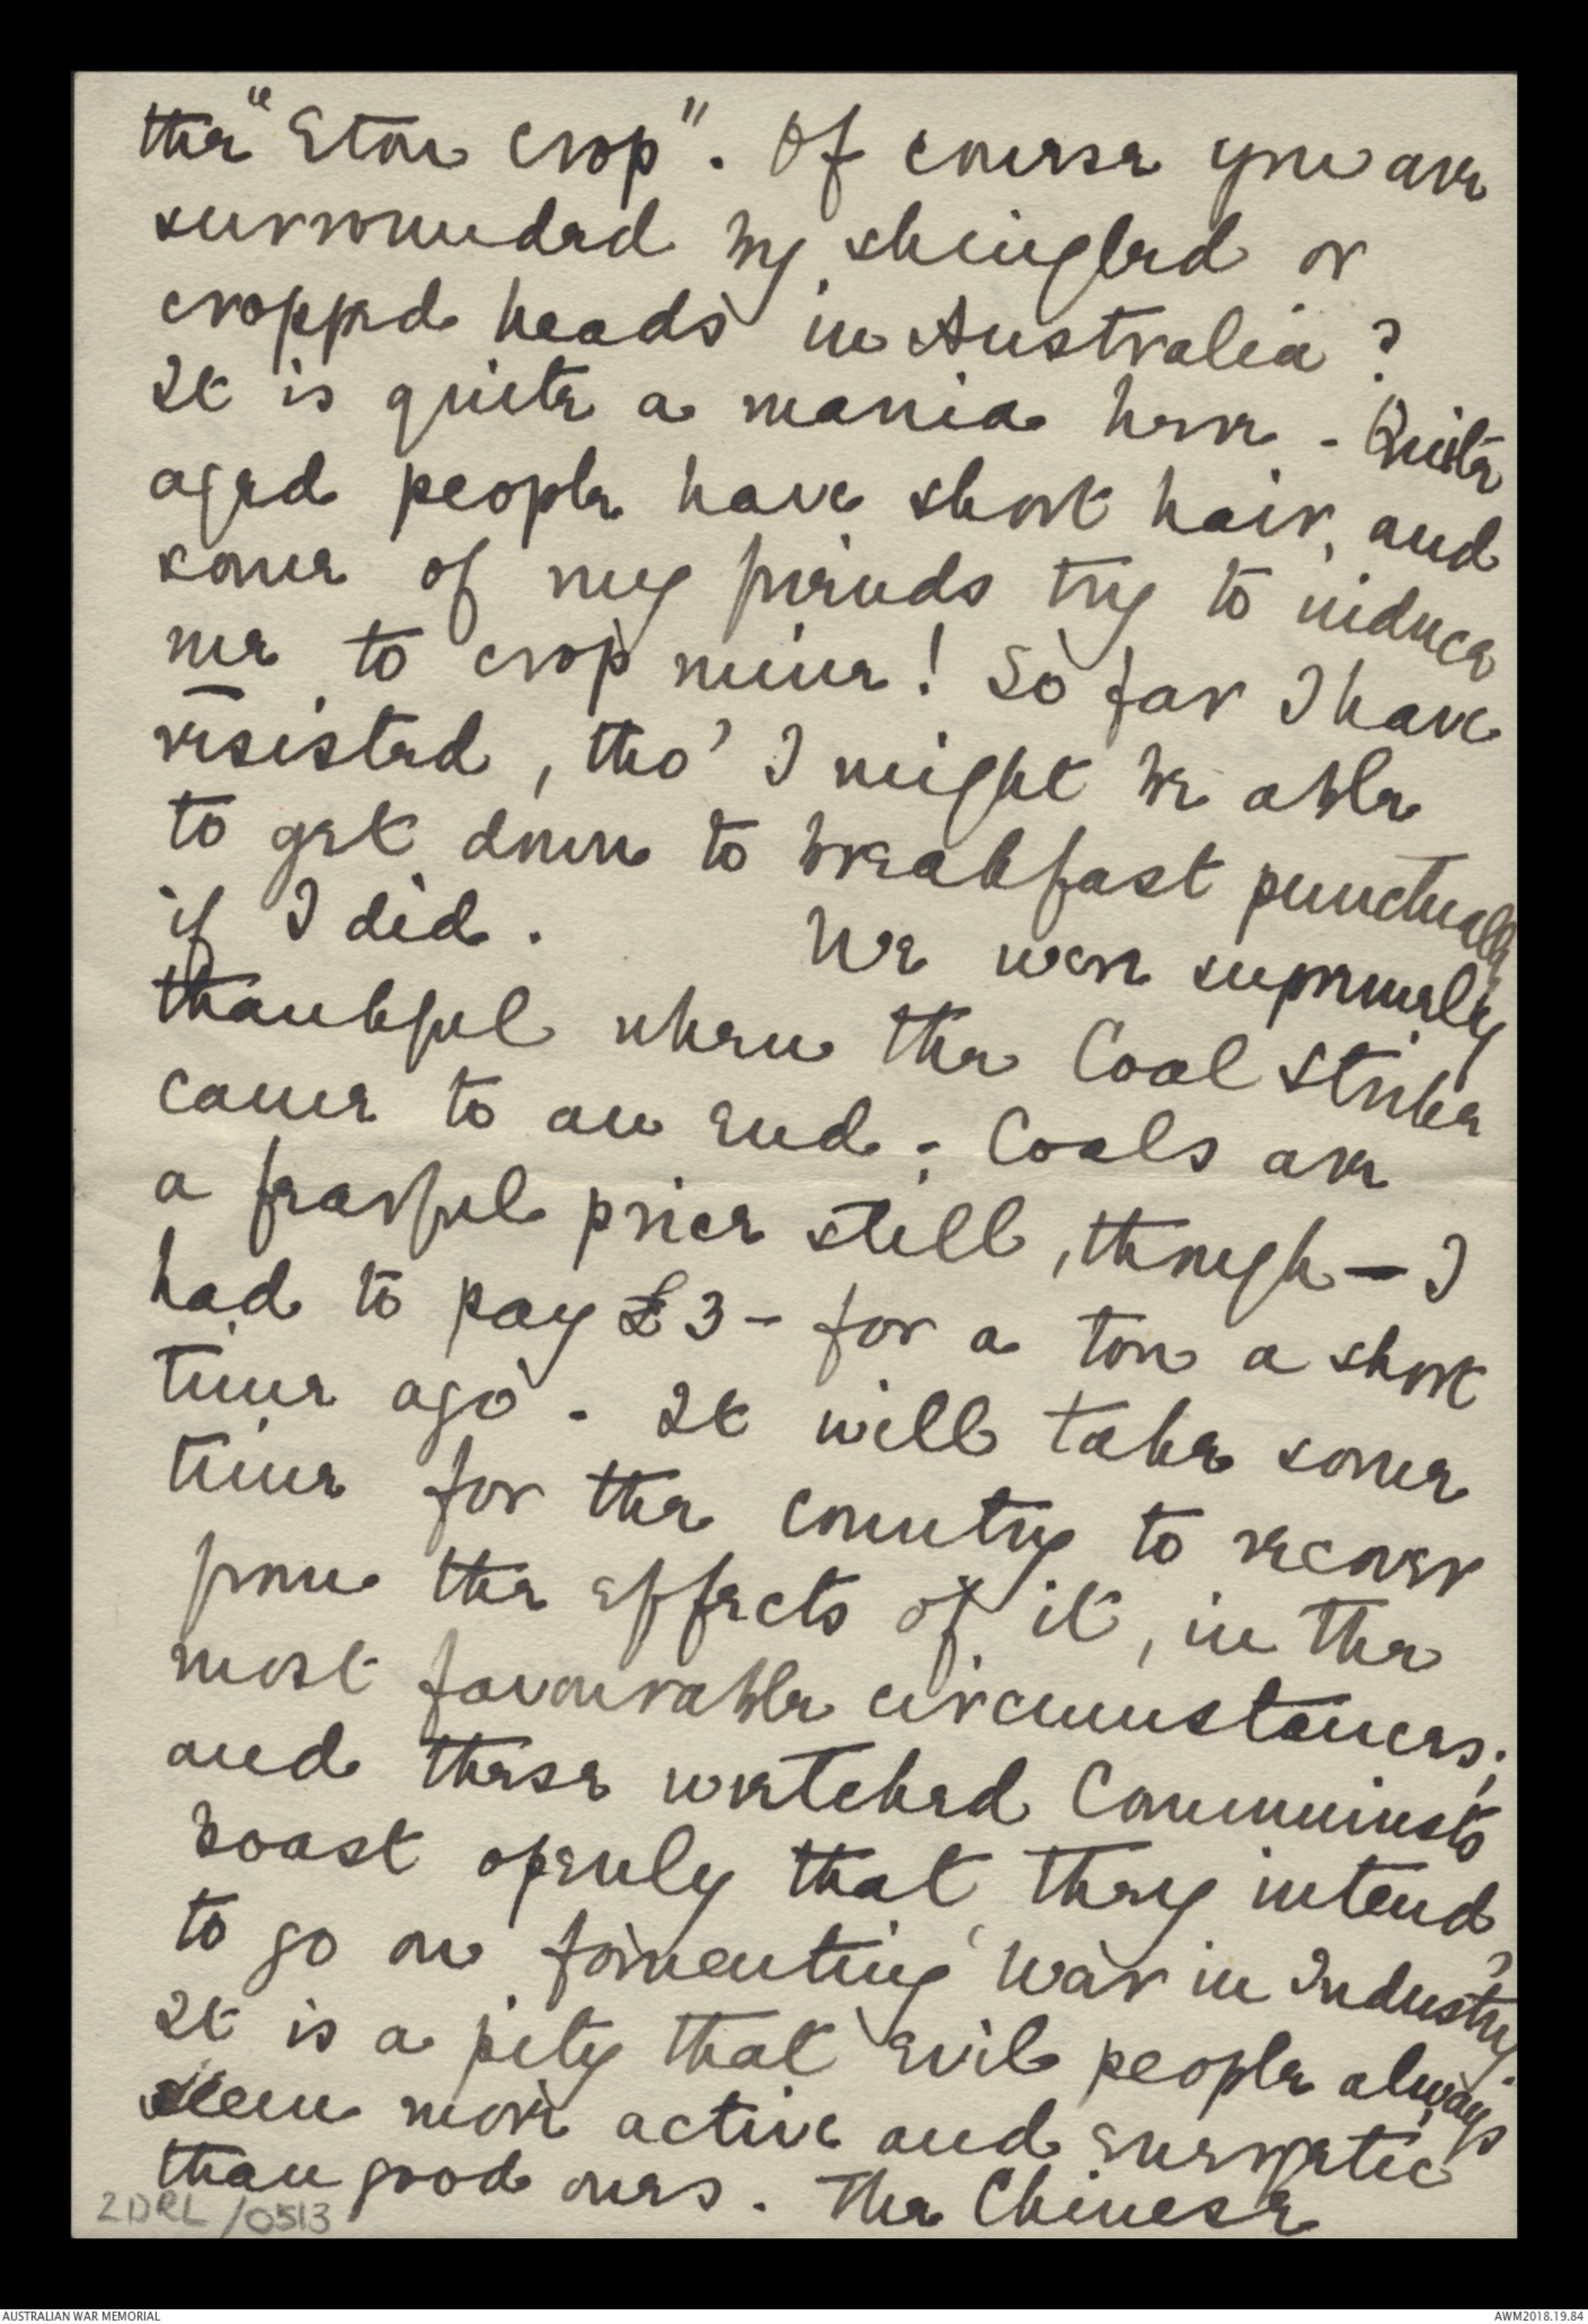 the "Eton crop". Of course you are
surrounded by shingled or
cropped heads in Australia?
It is quite a mania here - Quite
aged people have short hair, and
some of my friends try to induce
me to crop mine! So far I have
resisted, tho' I might be able
to get down to breakfast punctually
if I did. We were supremely
thankful when the Coal Strike
came to an end; Coals are
a fearful price still, though — I
had to pay £3 - for a ton a short
time ago. It will take some
time for the country to recover
from the effects of it, in the
most favourable circumstances;
and these wretched Communists
boast openly that they intend
to go on fomenting 'War in Industry'.
It is a pity that evil people always
seem more active and energetic
than good ones. The Chinese
2DRL/0513
AUSTRALIAN WAR MEMORIAL
AWM2018.19.84